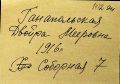 Ганапольская
Двойра Мееровна
1916г.
Соборная 7